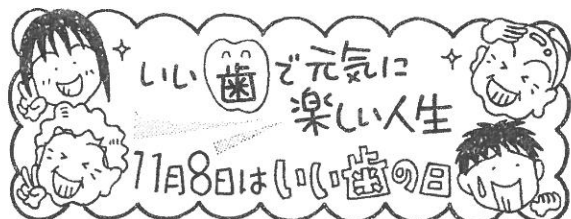 いい歯で元気に
楽しい人生
11月8日はいい歯の日